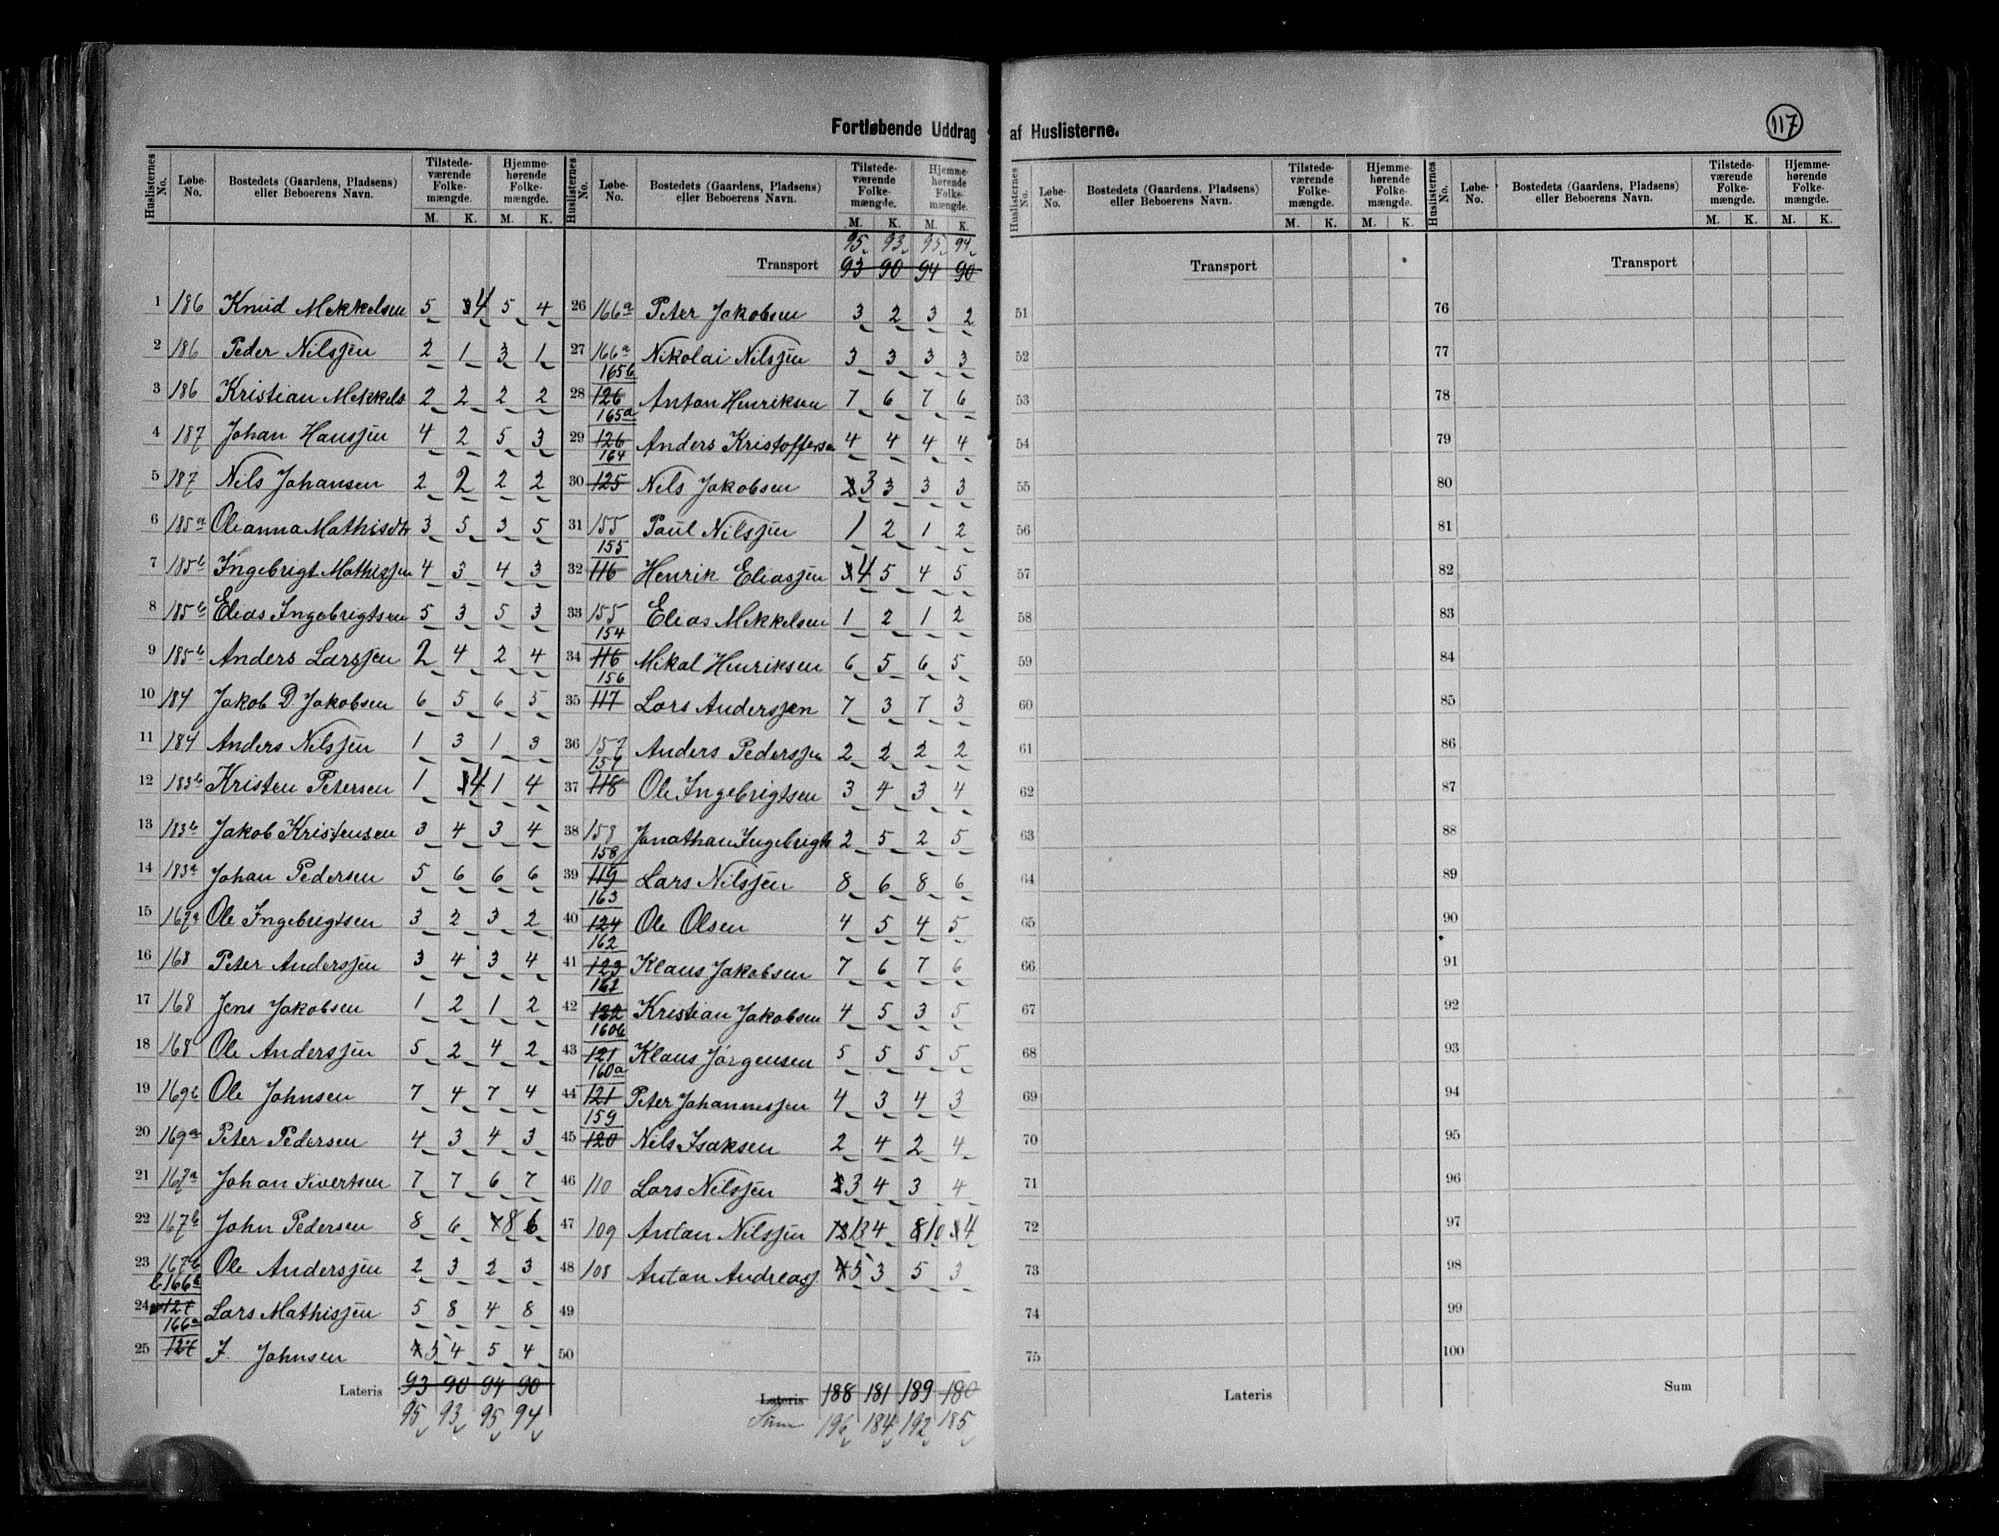 Fortløbende Uddrag af Huslisterne.
117
Huslisternes No. Løbe-No. Bostedets (Gaardens, Pladsens) eller Beboerens Navn. Tilstedeværende Folkemængde. M. K. Hjemmehørende Folkemængde. M. K.
1 186 Knud Mekkelsen 5 4 5 4
2 186 Peder Nilssen 2 1 3 1
3 186 Kristian Mekkels 2 2 2 2
4 187 Johan Hanssen 4 2 5 3
5 187 Nils Johansen 2 2 2 2
6 185a Oleanna Mathisdtr 3 5 3 5
7 185b Ingebrigt Mathissen 4 3 4 3
8 185b Elias Ingebrigtsen 5 3 5 3
9 185b Anders Larssen 2 4 2 4
10 184 Jakob D. Jakobsen 6 5 6 5
11 184 Anders Nilssen 1 3 1 3
12 183b Kristen Petersen 1 4 1 4
13 183b Jakob Kristensen 3 4 3 4
14 183a Johan Pedersen 5 6 6 6
15 167a Ole Ingebrigtsen 3 2 3 2
16 168 Peter Anderssen 3 4 3 4
17 168 Jens Jakobsen 1 2 1 2
18 168 Ole Anderssen 5 2 4 2
19 169b Ole Johnsen 7 4 7 4
20 169a Peter Pedersen 4 3 4 3
21 167a Johan Sivertsen 7 7 6 7
22 167b John Pedersen 8 6 8 6
23 167b Ole Anderssen 2 3 2 3
166a
24 127 Lars Mathissen 5 8 4 8
166a
25 127 J. Johnsen 5 4 5 4
Lateris 93 90 94 90
95 93 95 94
Huslisternes No. Løbe-No. Bostedets (Gaardens, Pladsens) eller Beboerens Navn. Tilstedeværende Folkemængde. M. K. Hjemmehørende Folkemængde. M. K.
95 93 95 94
Transport 93 90 94 90
26 166a Peter Jakobsen 3 2 3 2
27 166a Nikolai Nilssen 3 3 3 3
165b
28 126 Anton Henriksen 7 6 7 6
165a
29 126 Anders Kristoffersen 4 4 4 4
164
30 125 Nils Jakobsen 3 3 3 3
31 155 Paul Nilssen 1 2 1 2
155
32 116 Henrik Eliassen 4 5 4 5
33 155 Elias Mekkelsen 1 2 1 2
154
34 116 Mekal Henriksen 6 5 6 5
156
35 117 Lars Anderssen 7 3 7 3
36 157 Anders Pederssen 2 2 2 2
157
37 118 Ole Ingebrigtsen 3 4 3 4
38 158 Jonathan Ingebrigts 2 5 2 5
158
39 119 Lars Nilssen 8 6 8 6
163
40 124 Ole Olsen 4 5 4 5
162
41 123 Klaus Jakobsen 7 6 7 6
161
42 122 Kristian Jakobsen 4 5 3 5
160b
43 121 Klaus Jørgensen 5 5 5 5
160a
44 121 Peter Johannessen 4 3 4 3
159
45 120 Nils Isaksen 2 4 2 4
46 110 Lars Nilssen 3 4 3 4
47 109 Antan Nilssen 13 4 10 4
48 108 Antan Andreass. 5 3 5 3
49
50
Lateris 188 181 189 180
Sum 196 184 192 185
Huslisternes No. Løbe-No. Bostedets (Gaardens, Pladsens) eller Beboerens Navn. Tilstedeværende Folkemængde. M. K. Hjemmehørende Folkemængde. M. K.
Transport
51
52
53
54
55
56
57
58
59
60
61
62
63
64
65
66
67
68
69
70
71
72
73
74
75
Lateris
Huslisternes No. Løbe-No. Bostedets (Gaardens, Pladsens) eller Beboerens Navn. Tilstedeværende Folkemængde. M. K. Hjemmehørende Folkemængde. M. K.
Transport
76
77
78
79
80
81
82
83
84
85
86
87
88
89
90
91
92
93
94
95
96
97
98
99
100
Sum